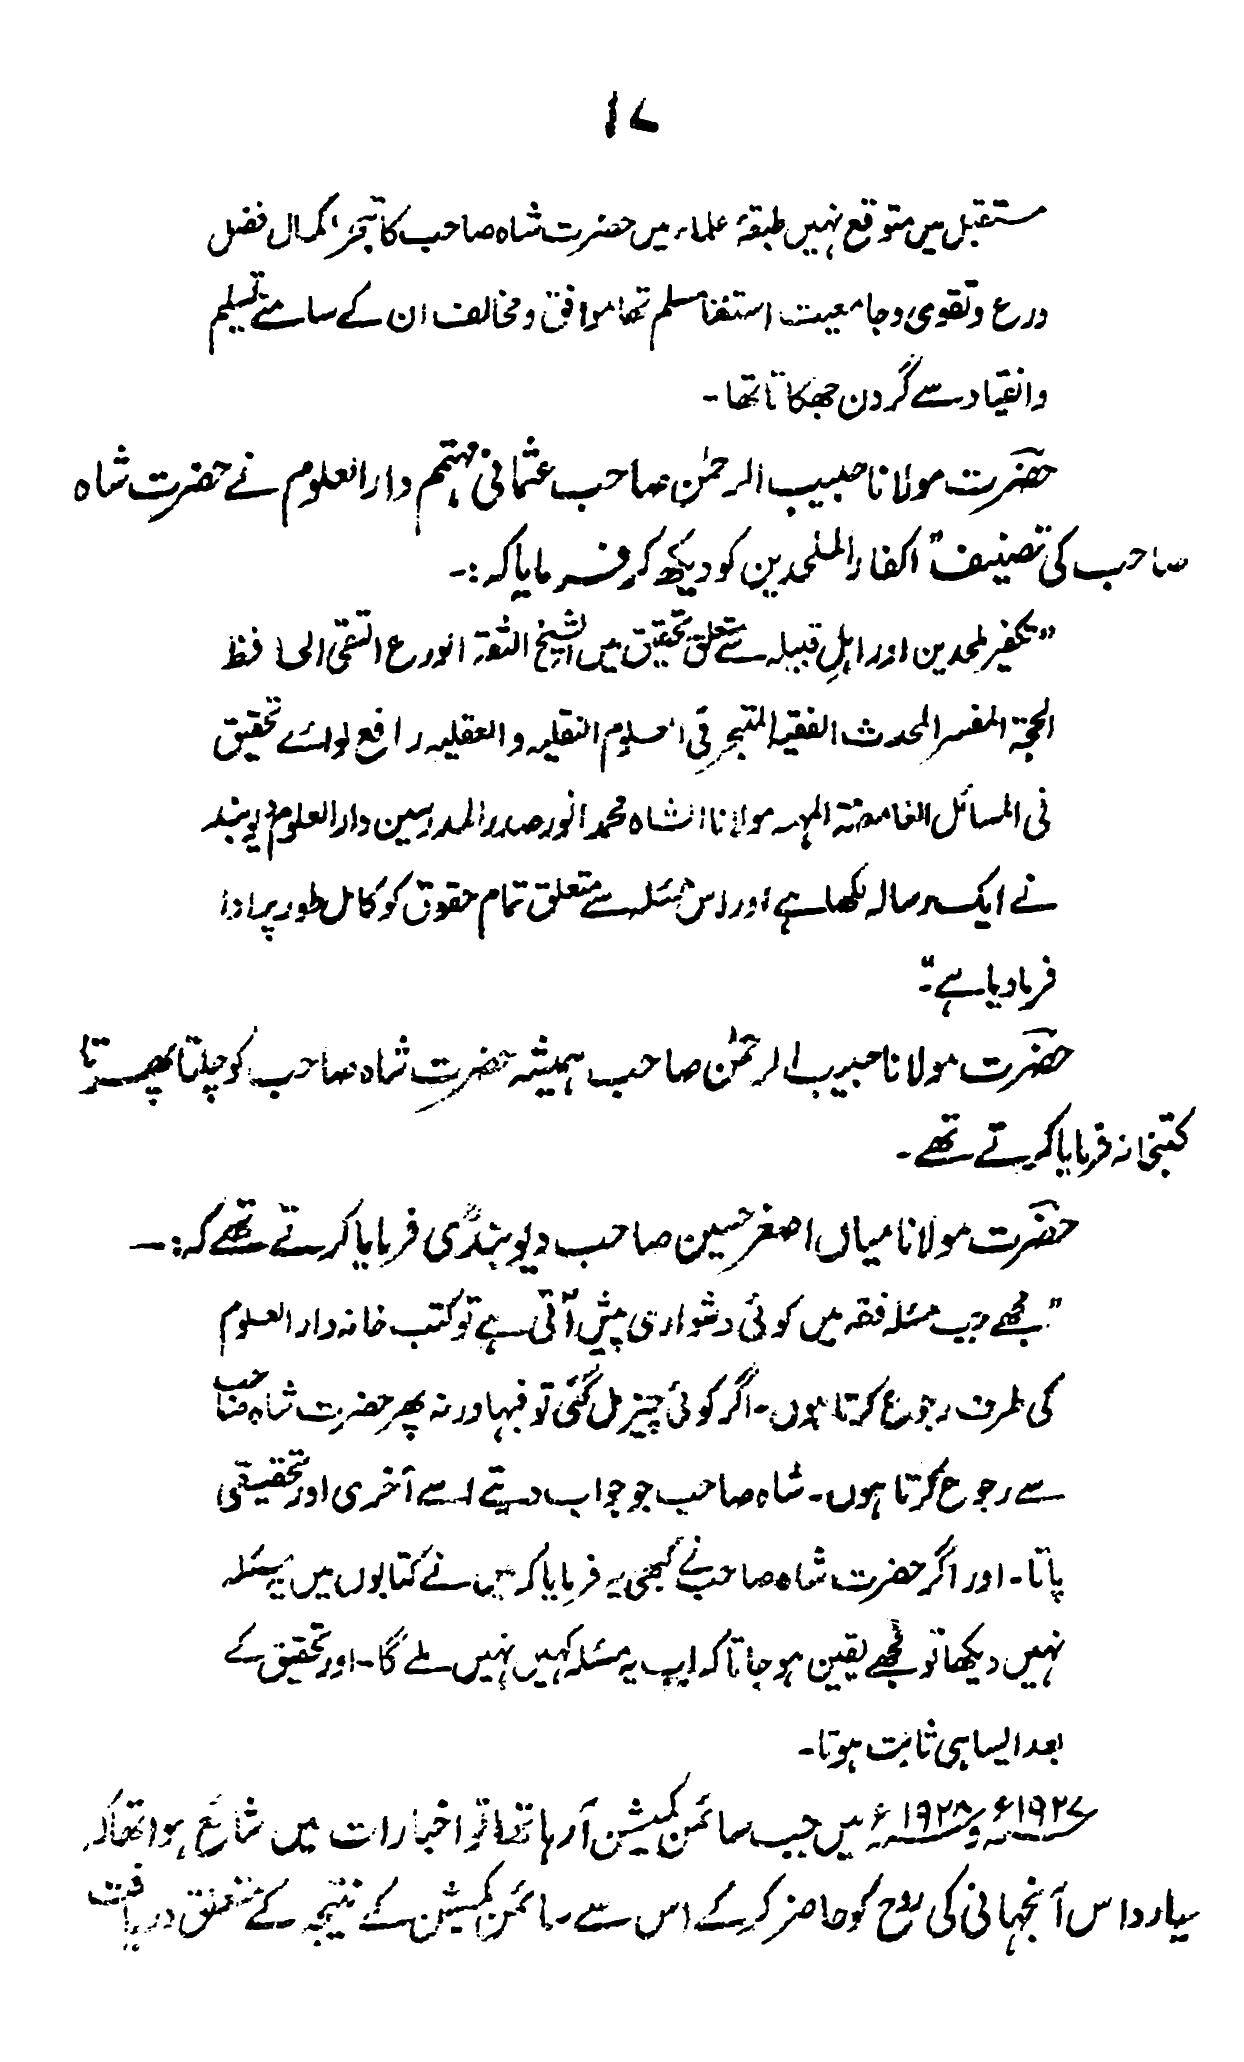 ۱۷
مستقبل میں متوقع نہیں طبقۂ علماء میں حضرت شاہ صاحب کا تبحر، کمال فضل
ورع و تقویٰ و جامعیت استغنا مسلم تھا موافق و مخالف ان کے سامنے تسلیم
وانقیاد سے گردن جھکاتا تھا۔
حضرت مولانا حبیب الرحمٰن صاحب عثمانی مہتمم دارالعلوم نے حضرت شاہ
صاحب کی تصنیف "اکفار الملحدین کو دیکھ کر فرمایا کہ :۔
"تکفیر ملحدین اور اہلِ قبیلہ سے متعلق تحقیق میں الشیخ الثقۃ الورع التقی الحافظ
الحجۃ المفسر المحدث الفقیہ المتبحر فی العلوم النقلیہ و العقلیہ رافع لوائے تحقیق
فی المسائل الغامضۃ المہمہ مولانا الشاہ محمد انور صدر المدرسین دارالعلوم دیوبند
نے ایک رسالہ لکھا ہے اور اس مسئلہ سے متعلق تمام حقوق کو کامل طور پر ادا
فرما دیا ہے۔"
حضرت مولانا حبیب الرحمٰن صاحب ہمیشہ حضرت شاہ صاحب کو چلتا پھرتا
کتبخانہ فرمایا کرتے تھے۔
حضرت مولانا میاں اصغر حسین صاحب دیوبندیؒ فرمایا کرتے تھے کہ :۔
"مجھے جب مسئلہ فقہ میں کوئی دشواری پیش آتی ہے تو کتب خانہ دارالعلوم
کی طرف رجوع کرتا ہوں۔ اگر کوئی چیز مل گئی تو فبہا ورنہ پھر حضرت شاہ صاحب
سے رجوع کرتا ہوں۔ شاہ صاحب جو جواب دیتے اسے آخری اور تحقیقی
پاتا۔ اور اگر حضرت شاہ صاحب نے کبھی یہ فرمایا کہ میں نے کتابوں میں یہ مسئلہ
نہیں دیکھا تو مجھے یقین ہو جاتا کہ اب یہ مسئلہ کہیں نہیں ملے گا۔ اور تحقیق کے
بعد ایسا ہی ثابت ہوتا۔
۱۹۲۷ء و ۱۹۲۸ء میں جب سائمن کمیشن آرہا تھا تو اخبارات میں شائع ہوا تھا کہ
سیارداس آنجہانی کی روح کو حاضر کر کے اس سے سائمن کمیشن کے نتیجہ کے متعلق دریافت